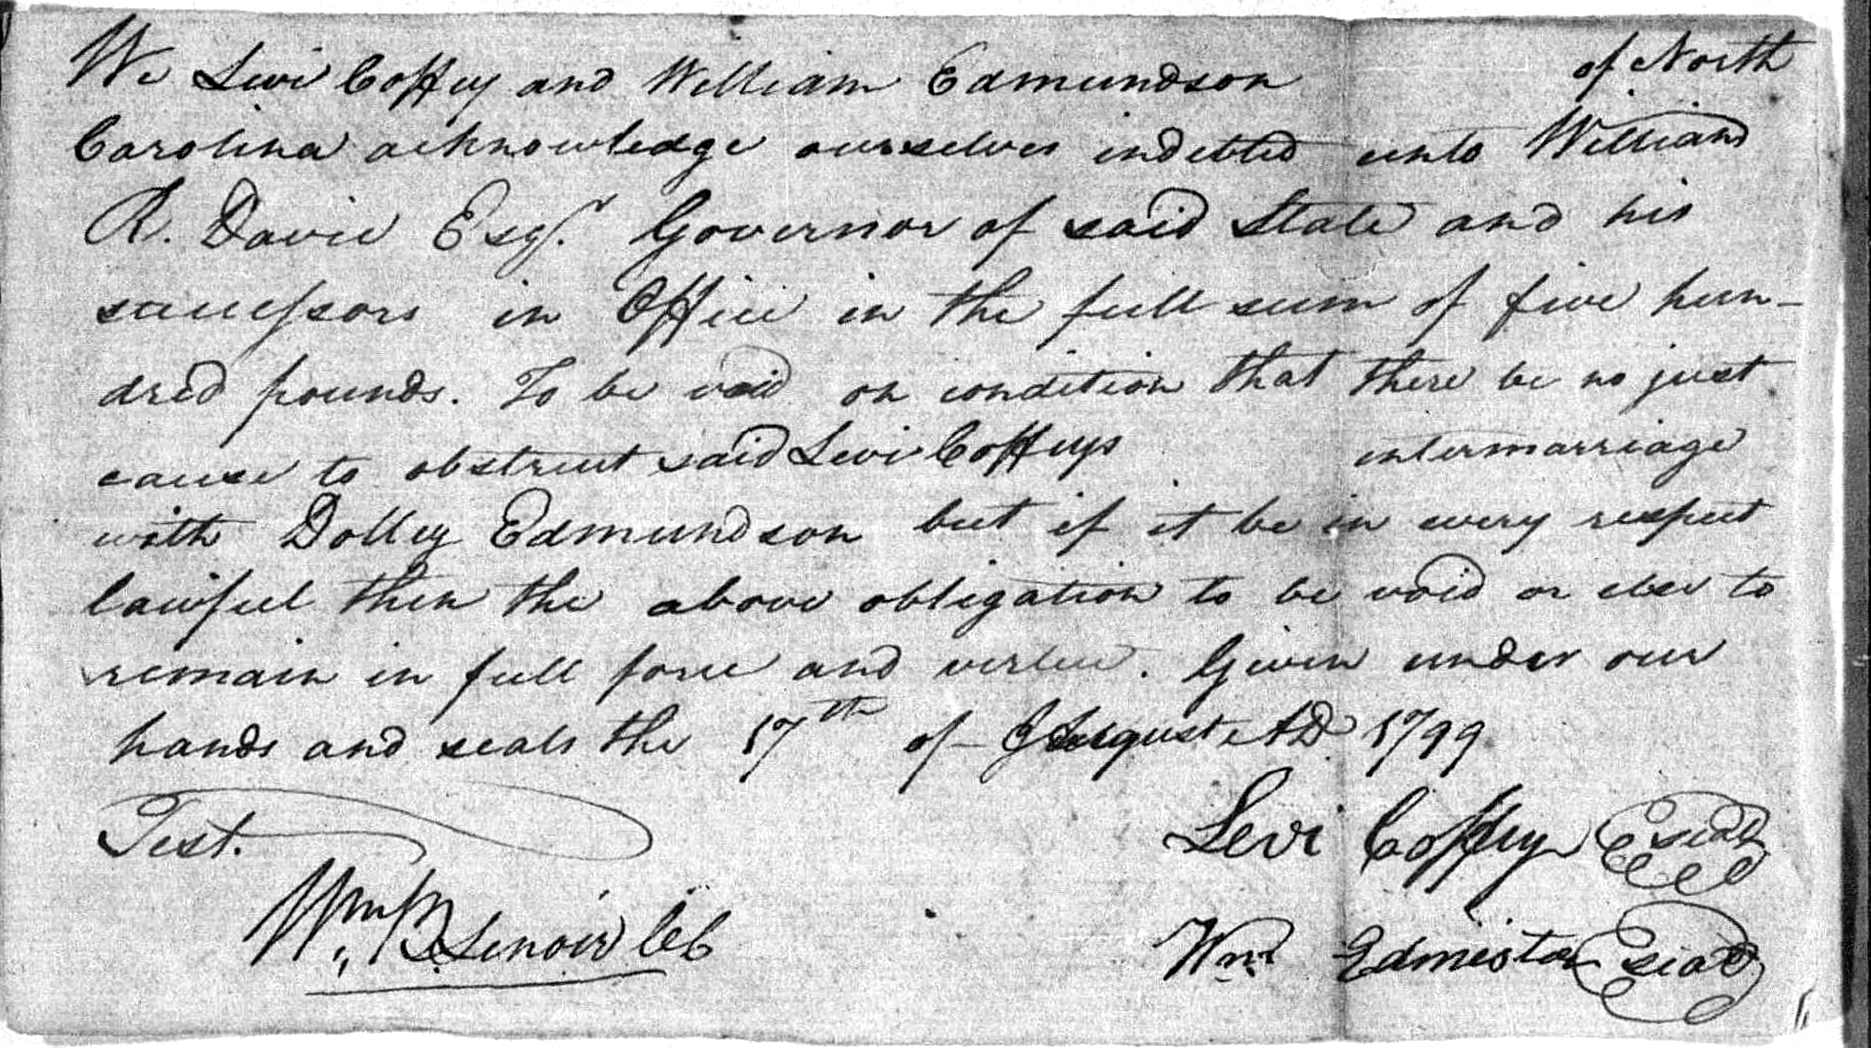 We Levi Coffey and William Edmundson of North
Carolina acknowledge ourselves indebted unto William
R. Davie Esqr. Governor of said State and his
successors in Office in the full sum of five hun-
dred pounds. To be void on condition that there be no just
cause to obstruct said Levi Coffeys intermarriage
with Dolley Edmundson but if it be in every respect
lawful then the above obligation to be void or else to
remain in full force and virtue. Given under our
hands and seals the 17th of August AD 1799
Test. Levi Coffey seal
Wm. B. Lenoir CC Wm. Edmiston seal